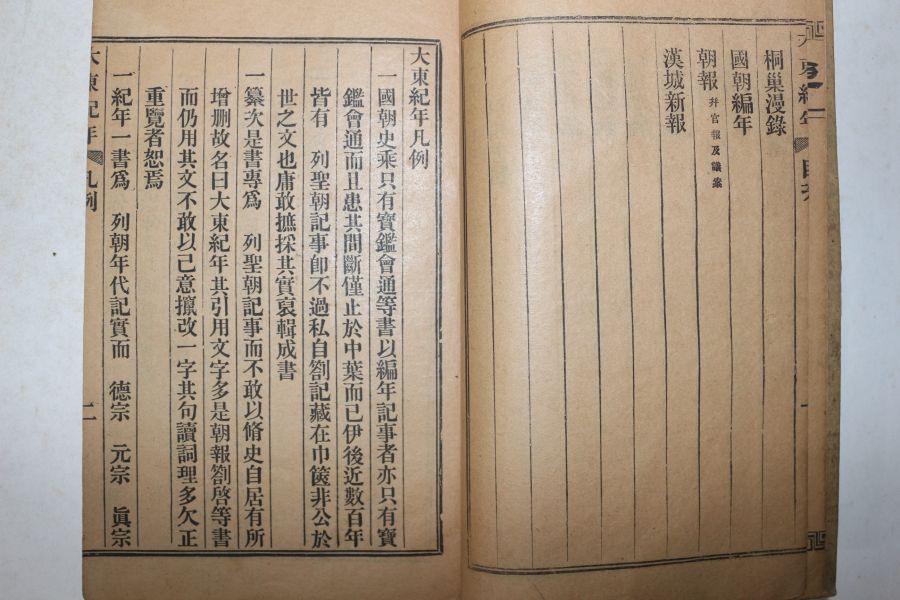 桐巢漫錄
國朝編年
朝報 幷官報及議案
漢城新報
大東紀年凡例
一國朝史乘只有寶鑑會通等書以編年記事者亦只有寶
鑑會通而且患其間斷僅止於中葉而已伊後近數百年
皆有 列聖朝記事卽不過私自劄記藏在巾篋非公於
世之文也庸敢摭採其實裒輯成書
一纂次是書專爲 列聖朝記事而不敢以脩史自居有所
增刪故名曰大東紀年其引用文字多是朝報劄啓等書
而仍用其文不敢以己意攛改一字其句讀詞理多欠正
重覽者恕焉
一紀年一書爲 列朝年代記實而 德宗 元宗 眞宗
大東紀年 凡例 二